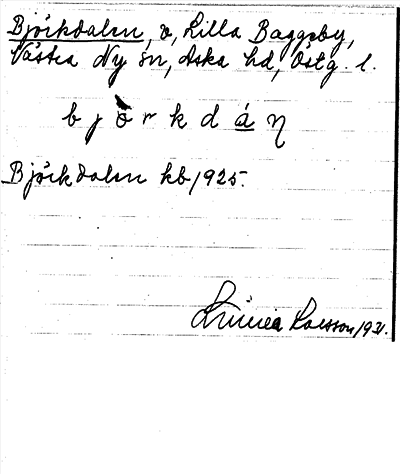 Björkdalen, v, Lilla Baggeby,
Västra Ny sn, Aska hd, Östg. l.
b j ò r k d á η
Björkdalen kb 1925.
Linnéa Larsson 1931.